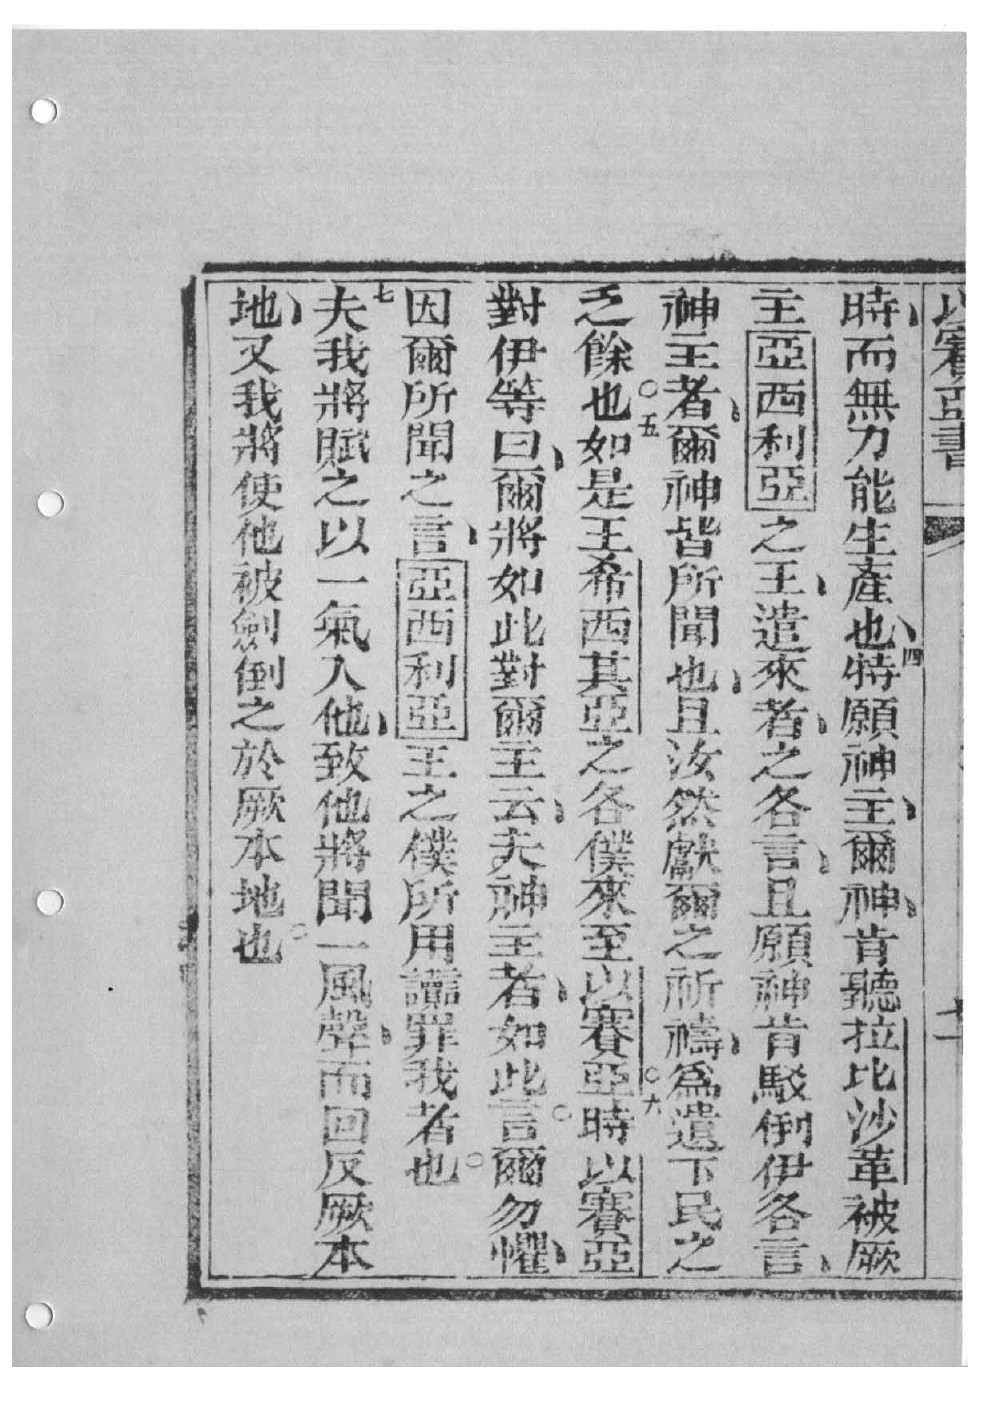 以賽亞書
時而無力能生產也四特願神主爾神肯聽拉比沙革被厥
主亞西利亞之王遣來者之各言且願神肯駁倒伊各言
神主者爾神皆所聞也且汝然獻爾之祈禱爲遺下民之
之餘也○五如是王希西其亞之各僕來至以賽亞時○六以賽亞
對伊等曰爾將如此對爾主云夫神主者如此言○爾勿懼
因爾所聞之言亞西利亞王之僕所用讟罪我者也○
七夫我將賦之以一氣入他致他將聞一風聲而回反厥本
地又我將使他被劍倒之於厥本地也○